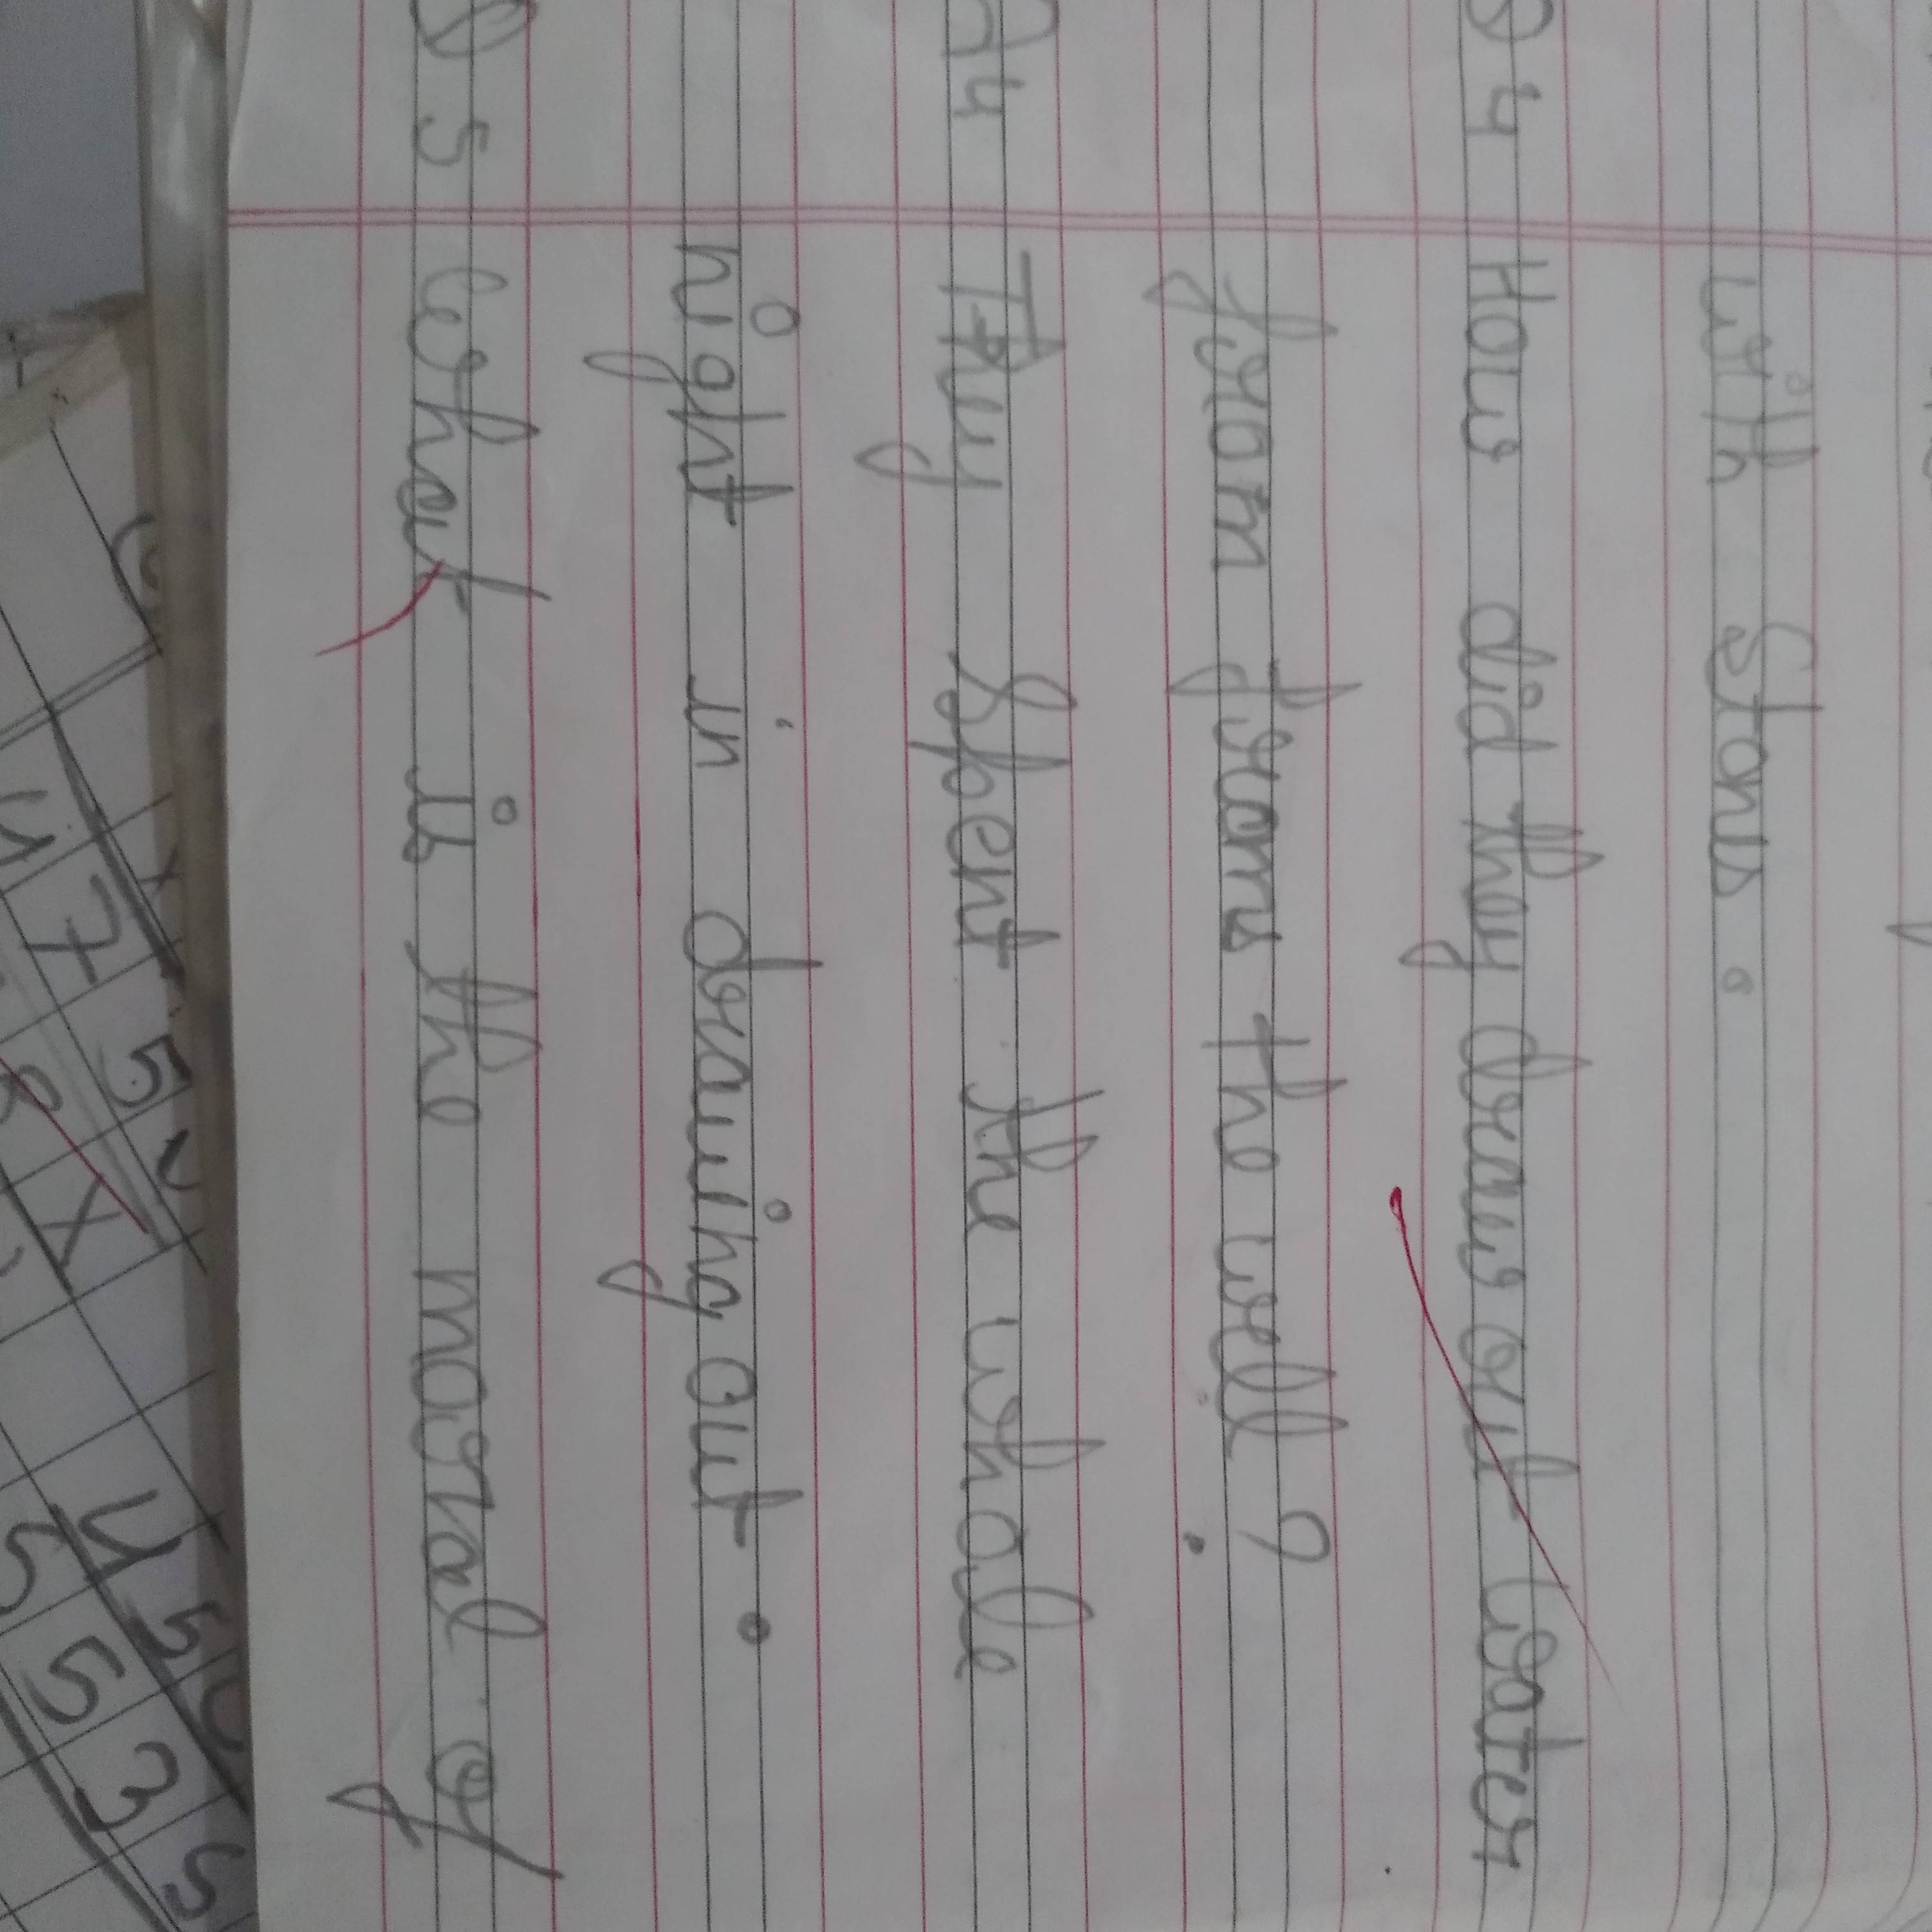 with Stones .
Q 4 How did they draw out water
from from the well ?
A4 They Spent the whole
night in drawing out .
Q 5 what is the moral of